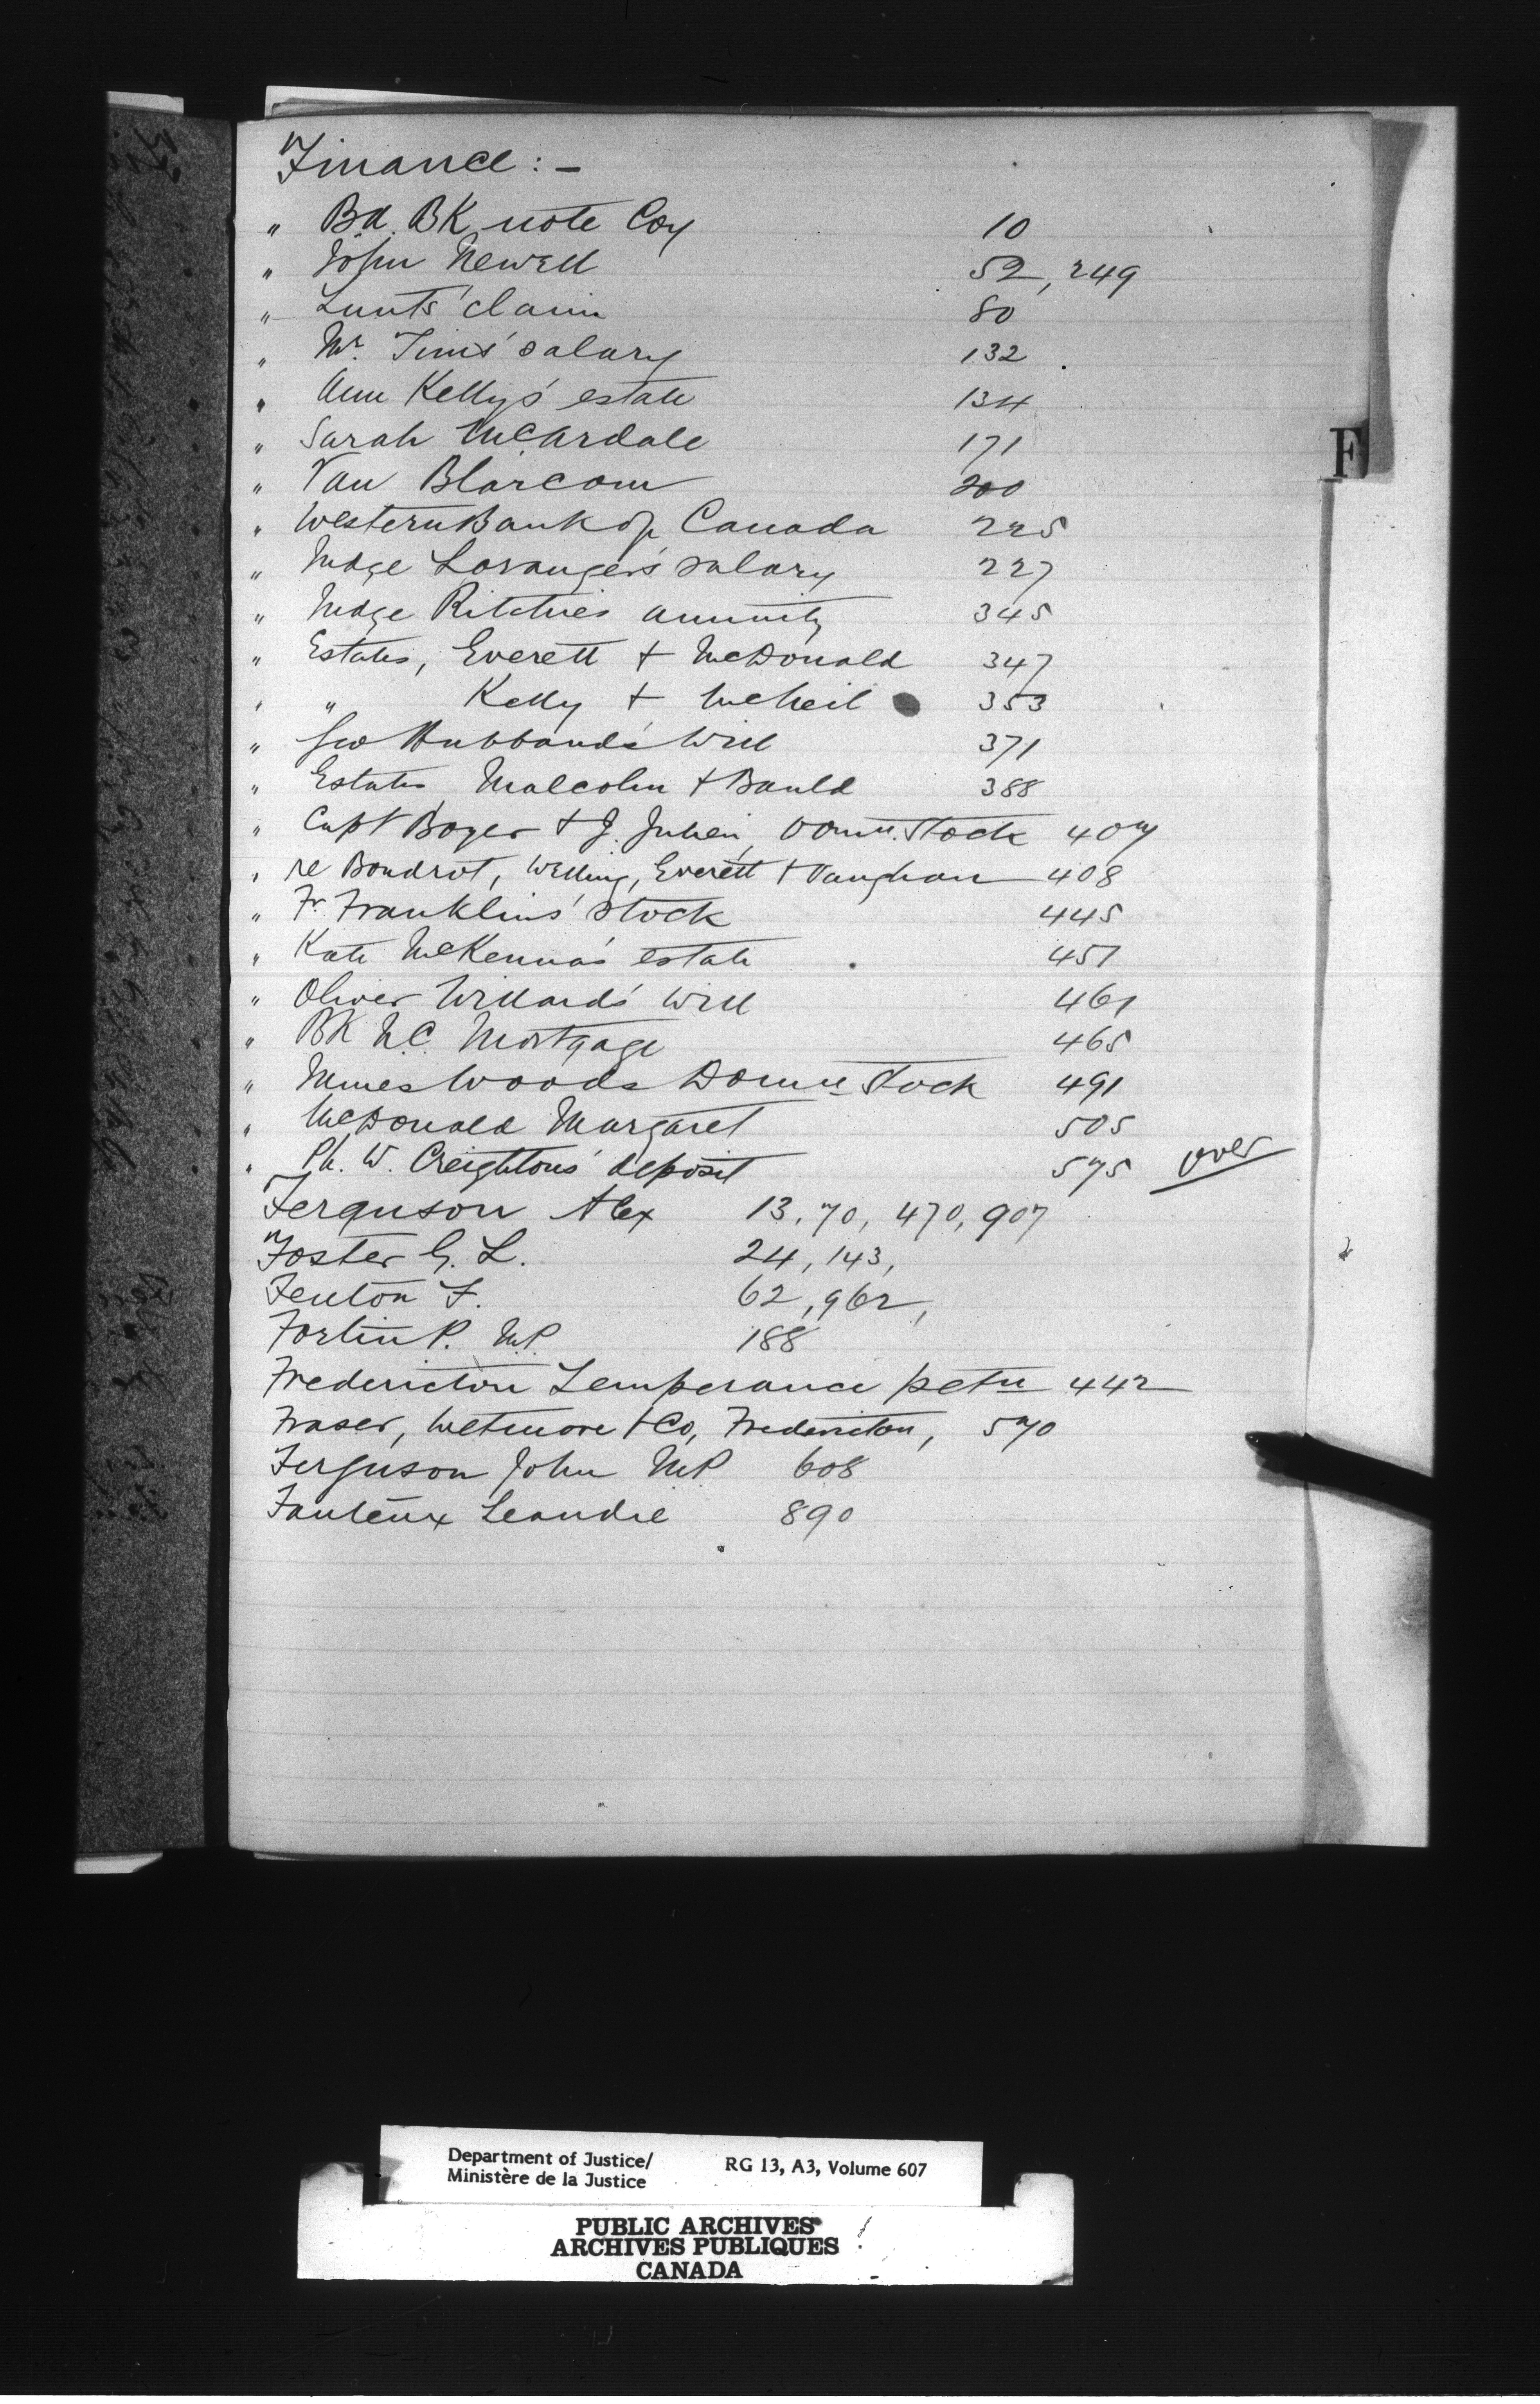 Finance : -
" Bd. BK note Coy 10
" John Newell 52, 249
" Lunts' claim 80
" Mr. Tims' salary 132
" Ann Kelly's estate 134
" Sarah McArdale 171
" Van Blarcom 200
" Western Bank of Canada 225
" Judge Loranger's salary 227
" Judge Ritchies annuity 345
" Estates, Everett + McDonald 347
" " Kelly + McNeil 353
" Geo Hubbard's Will 371
" Estates Malcolm + Bauld 388
" Capt Boyer + J. Julien, Domn. Stock 407
" re Boudrot, Welling, Everett + Vaughan 408
" Fr. Franklins' stock 445
" Kate McKenna's estate 451
" Oliver Willard's Will 461
" BK U.C. Mortgage 465
" Woods Domn Stock 491
" McDonald Margaret 505
" Ph. W. Creightons' deposit 575 over
Ferguson Alex 13, 70, 470, 907
Foster G. L. 24, 143,
Fenton F. 62, 962,
Fortin P. M.P. 188
Fredericton Temperance petn 442
Fraser, Wetmore + Co, Fredericton, 570
Ferguson John M.P. 608
Fauteux Leandre 890
F
Department of Justice/
Ministère de la Justice
RG 13, A3, Volume 607
PUBLIC ARCHIVES
ARCHIVES PUBLIQUES
CANADA